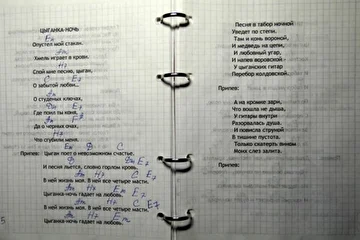 ЦЫГАНКА-НОЧЬ
Em
Опустел мой стакан,
Am
Хмель играет в крови.
H7
Спой мне песню, цыган,
C E7
О забытой любви...
Am
О студеных ключах,
Dm E7
Где поил ты коня,
Am F
Да о черных очах,
H7
Что сгубили меня.
Em D C
Припев: Цыган поет о невозможном счастье.
D Dm E7
И песня льется, словно горлом кровь.
Am H7 C E7
В ней жизнь моя. В ней все четыре масти.
Am H7 Em
Цыганка-ночь гадает на любовь.
Am H7 C E7
В ней жизнь моя. В ней все четыре масти.
Am H7 Em
Цыганка-ночь гадает на любовь.
5
Песня в табор ночной
Уведет по степи,
Там и конь вороной,
И медведь на цепи,
И любовный угар,
И напев воровской -
У цыганских гитар
Перебор колдовской.
Припев:
А на кромке зари,
Что вошла не дыша,
У гитары внутри
Разорвалась душа.
И повисла струной
В тишине пустота.
Только скатерть вином
Моня слез залита.
Припев: